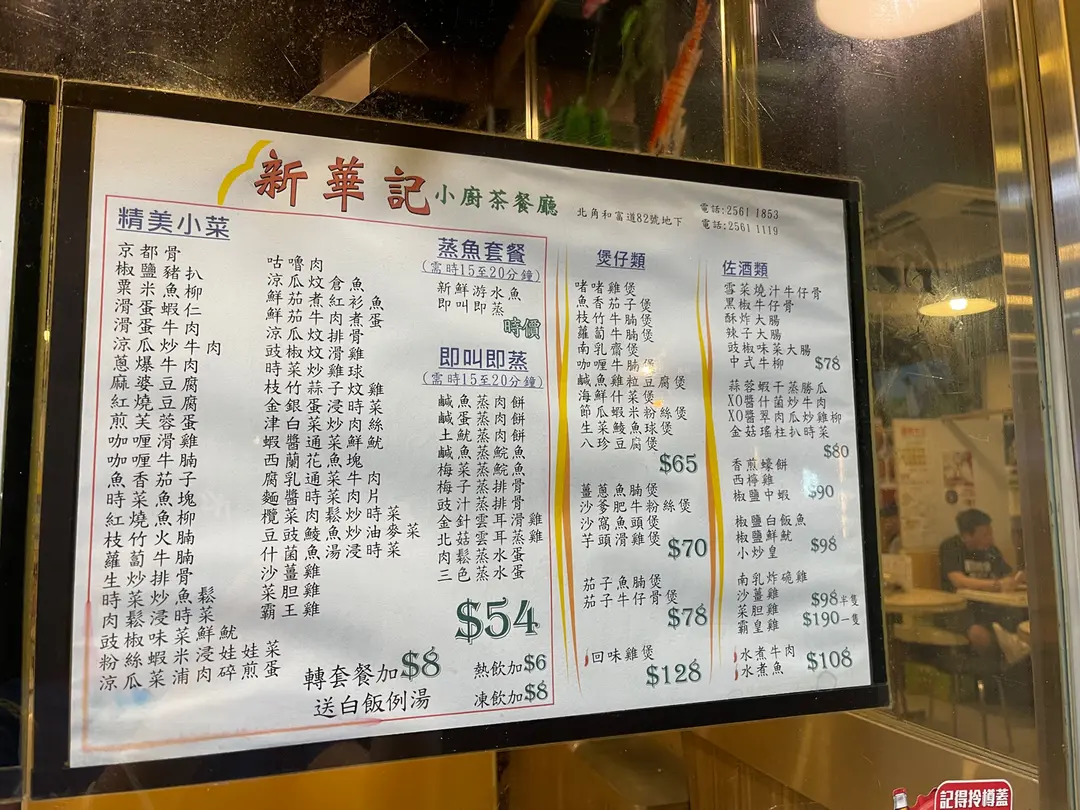 新華記小廚茶餐廳
北角和富道82號地下
電話:2561 1853
電話:2561 1119
精美小菜
京都骨
椒鹽豬扒
粟米魚柳
滑蛋蝦仁
滑蛋牛肉
涼瓜炒牛肉
蔥爆牛肉
麻婆豆腐
紅燒豆腐
煎芙蓉蛋
咖喱滑雞
咖喱牛腩
魚香茄子
時菜魚塊
紅燒魚柳
枝竹火腩
蘿蔔牛腩
生炒排骨
時菜炒魚鬆
肉鬆浸時菜
豉椒味菜鮮魷
粉絲蝦米浸娃娃菜
涼瓜菜浦肉碎煎蛋
咕嚕肉
涼瓜炆倉魚
鮮茄煮紅衫魚
鮮茄牛肉煮蛋
涼瓜炆排骨
豉椒炆滑雞
時菜炒雞球
枝竹蒜子炆雞
金銀蛋浸時菜
津白菜炒肉絲
蝦醬通菜鮮魷
西蘭花魚塊
腐乳通菜牛肉
麵醬時菜肉片
欖菜肉鬆炒時菜
豆豉鯪魚炒油麥菜
什菌魚湯浸時菜
沙薑雞
菜胆雞
霸王雞
蒸魚套餐
(需時15至20分鐘)
新鮮游水魚
即叫即蒸
時價
即叫即蒸
(需時15至20分鐘)
鹹魚蒸肉餅
鹹蛋蒸肉餅
土魷蒸肉餅
鹹魚蒸鯇魚
梅菜蒸鯇魚
梅子蒸排骨
豉汁蒸排骨
金針雲耳滑雞
北菇雲耳蒸雞
肉鬆蒸水蛋
三色蒸水蛋
$54
轉套餐加$8
送白飯例湯
熱飲加$6
凍飲加$8
煲仔類
啫啫雞煲
魚香茄子煲
枝竹牛腩煲
蘿蔔牛腩煲
南乳齋煲
咖喱牛腩煲
鹹魚雞粒豆腐煲
海鮮什菜煲
節瓜蝦米粉絲煲
生菜鯪魚球煲
八珍豆腐煲
$65
薑蔥魚腩煲
沙爹肥牛粉絲煲
沙窩魚頭煲
芋頭滑雞煲
$70
茄子魚腩煲
茄子牛仔骨煲
$78
回味雞煲
$128
佐酒類
雪菜燒汁牛仔骨
黑椒牛仔骨
酥炸大腸
辣子大腸
豉椒味菜大腸
中式牛柳
$78
蒜蓉蝦干蒸勝瓜
XO醬什菌炒牛肉
XO醬翠肉瓜炒雞柳
金菇瑤柱扒時菜
$80
香煎蠔餅
西檸雞
椒鹽中蝦
$90
椒鹽白飯魚
椒鹽鮮魷
小炒皇
$98
南乳炸碗雞
沙薑雞
菜胆雞
霸皇雞
$98半隻
$190一隻
水煮牛肉
水煮魚
$108
記得拎樽蓋